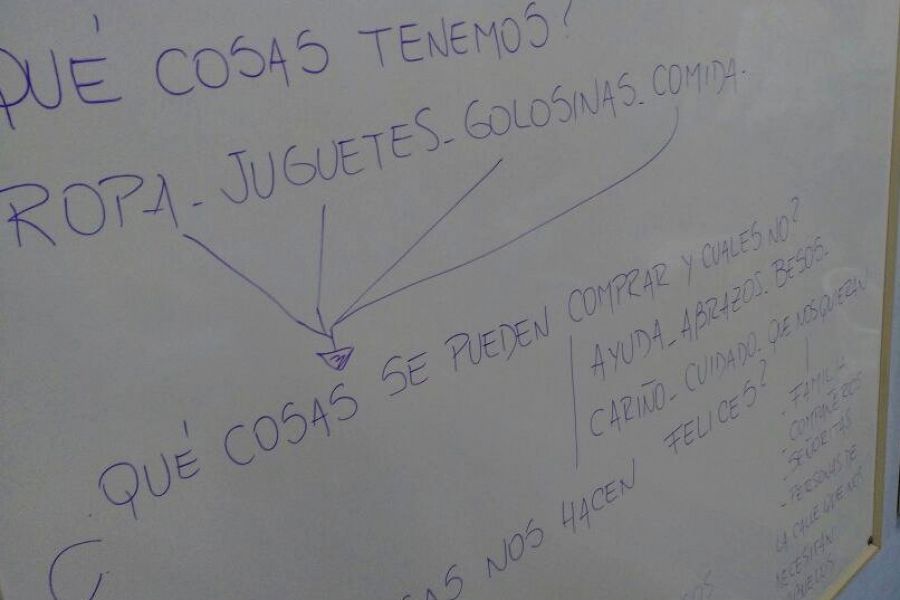 QUÉ COSAS TENEMOS?
ROPA - JUGUETES - GOLOSINAS - COMIDA.
QUÉ COSAS SE PUEDEN COMPRAR Y CUALES NO?
AYUDA - ABRAZOS - BESOS -
CARIÑO - CUIDADO - QUE NOS QUIERAN
- FAMILIA
- COMPAÑEROS
- SEÑORITAS
- PERSONAS DE
LA CALLE QUE NOS
NECESITAN
NOS HACEN FELICES?